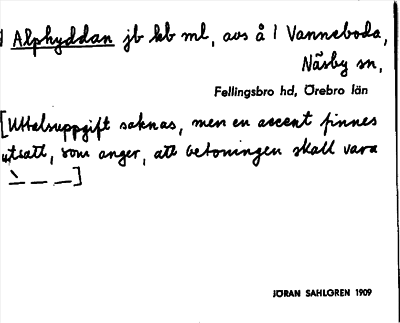 Alphyddan jb kb ml, avs å 1 Vanneboda,
Näsby sn,
Fellingsbro hd, Örebro län
[Uttalsuppgift saknas, men en accent finnes
utsatt, som anger, att betoningen skall vara
ˋ– – –]
JÖRAN SAHLGREN 1909